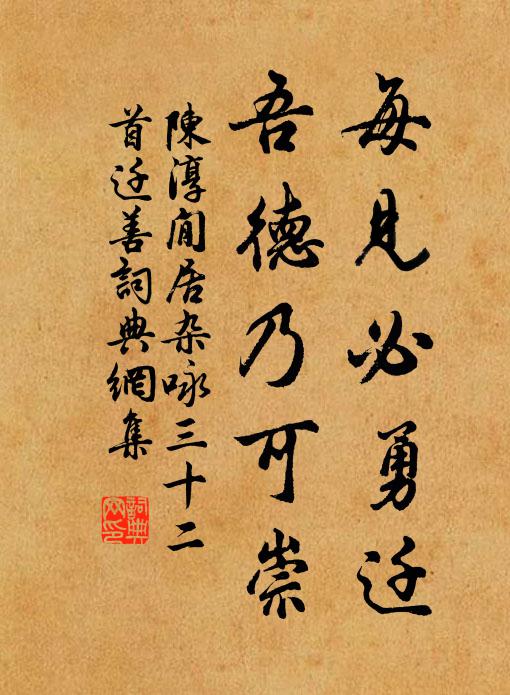 每見必勇迁
吾德乃可崇
陳淳閒居杂咏三十二
首迁善詞典網集
詞典网印